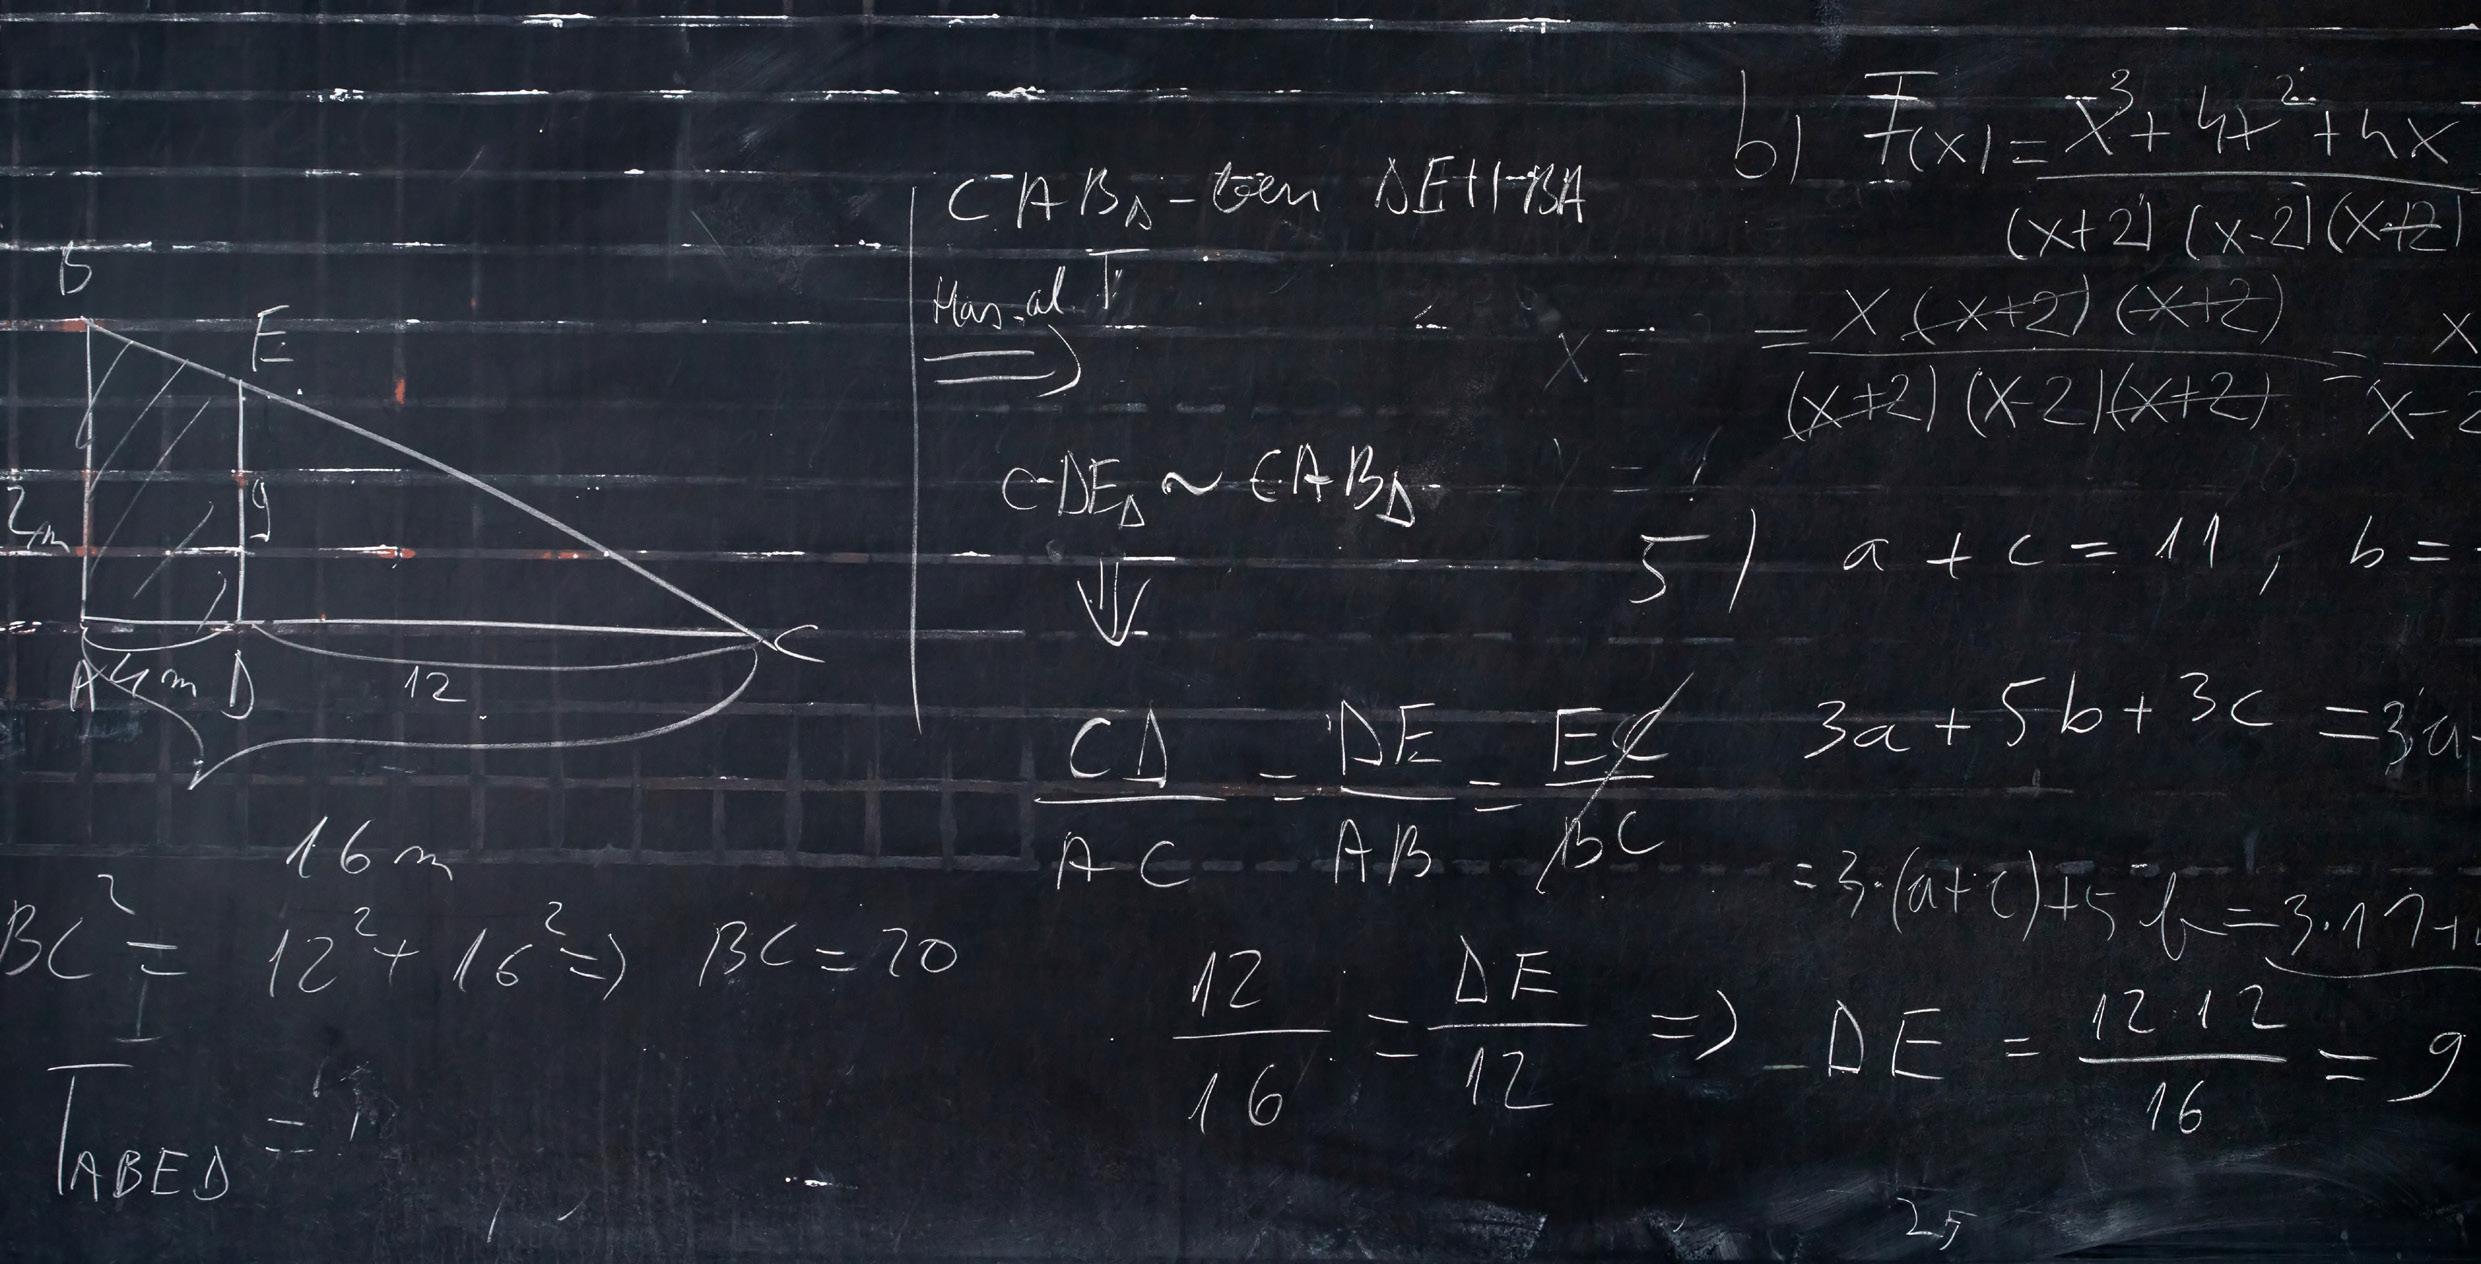 B
E
2m
9
A 4m D
12
C
16 m
BC² = 12² + 16² => BC = 20
T_ABED = ?
CAB△-ben DE || BA
Has. al. T
=>
CDE△ ~ CAB△
⇓
CD/AC = DE/AB = EC/BC
12/16 = DE/12 => DE = 12·12/16 = 9
b) F(x) = x³ + 4x² + 4x / (x+2)(x-2)(x+2)
x =
= x(x+2)(x+2) / (x+2)(x-2)(x+2) = x / x-2
5) a + c = 11, b =
3a + 5b + 3c = 3a
= 3·(a+c) + 5b = 3·11+
25